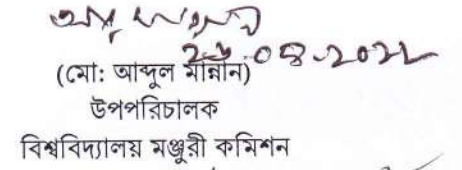 ২৬.০৪.২০২২
(মো: আব্দুল মান্নান)
উপপরিচালক
বিশ্ববিদ্যালয় মঞ্জুরী কমিশন